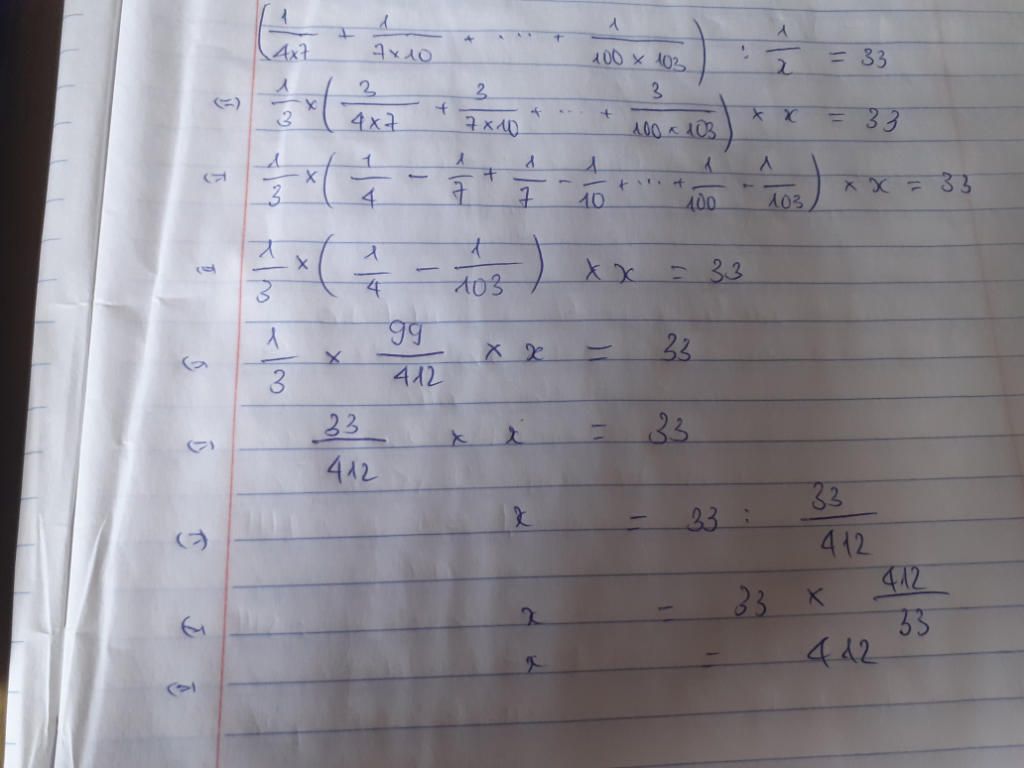 (1/4×7 + 1/7×10 + ... + 1/100×103) : 1/x = 33
(=) 1/3 × (3/4×7 + 3/7×10 + ... + 3/100×103) × x = 33
(=) 1/3 × (1/4 - 1/7 + 1/7 - 1/10 + ... + 1/100 - 1/103) × x = 33
(=) 1/3 × (1/4 - 1/103) × x = 33
(=) 1/3 × 99/412 × x = 33
(=) 33/412 × x = 33
(=) x = 33 : 33/412
(=) x = 33 × 412/33
(=) x = 412